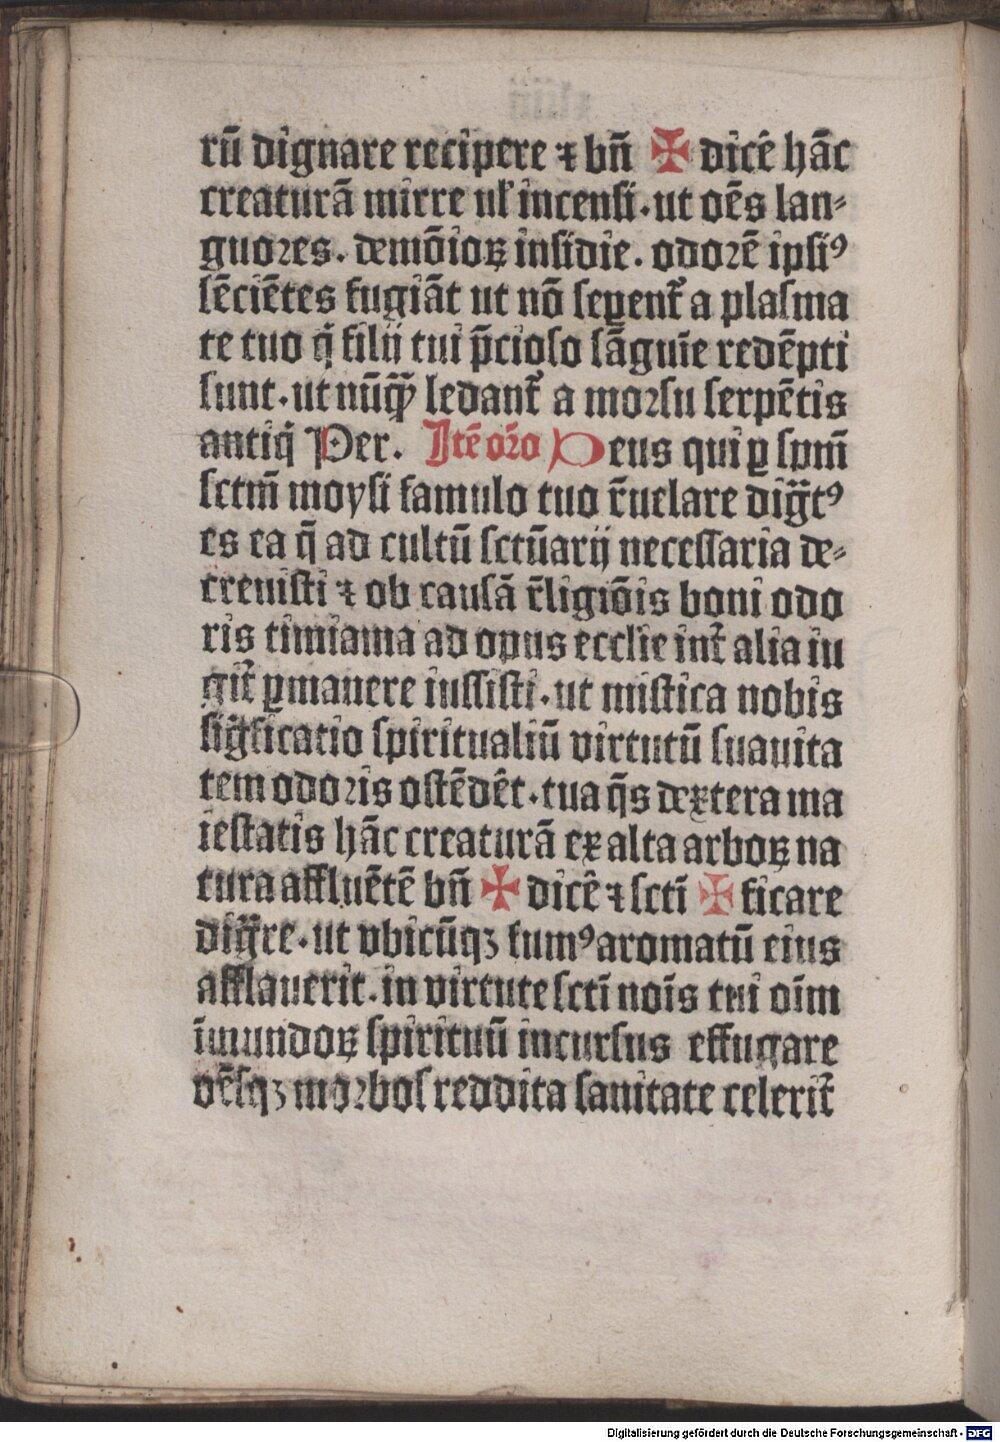 rū dignare recipere ⁊ bn̄ ✠ dicē hāc
creaturā mirre ul̕ incensi. ut oēs lan⸗
guores. demōioꝝ insidie. odorē ipsiꝰ
sēciētes fugiāt ut nō seꝑent᷑ a plasma
te tuo q̄ filij tui p̄cioso sāguīe redēpti
sunt. ut nūqꝫ ledant᷑ a morsu serpētis
antiq̄ Per. Itē oro Deus qui ꝑ spm̄
sctm̄ moysi famulo tuo r̄uelare diḡtꝰ
es ea q̄ ad cultū sctūarij necessaria de⸗
creuisti ⁊ ob causā r̄ligiōis boni odo
ris timiama ad opus ecclie int᷑ alia iu
git᷑ ꝑmanere iussisti. ut mistica nobis
siḡficatio spiritualiū virtutū suauita
tem odoris ostēdēt. tua q̄s dextera ma
iestatis hāc creaturā ex alta arboꝝ na
tura affluētē bn̄ ✠ dicē ⁊ scti ✠ ficare
diḡre. ut vbicūqꝫ fumꝰ aromatū eius
afflauerit. in virtute scti noīs tui oīm
īmundoꝝ spirituū incursus effugare
oēsqꝫ morbos reddita sanitate celerit᷑
Digitalisierung gefördert durch die Deutsche Forschungsgemeinschaft - DFG